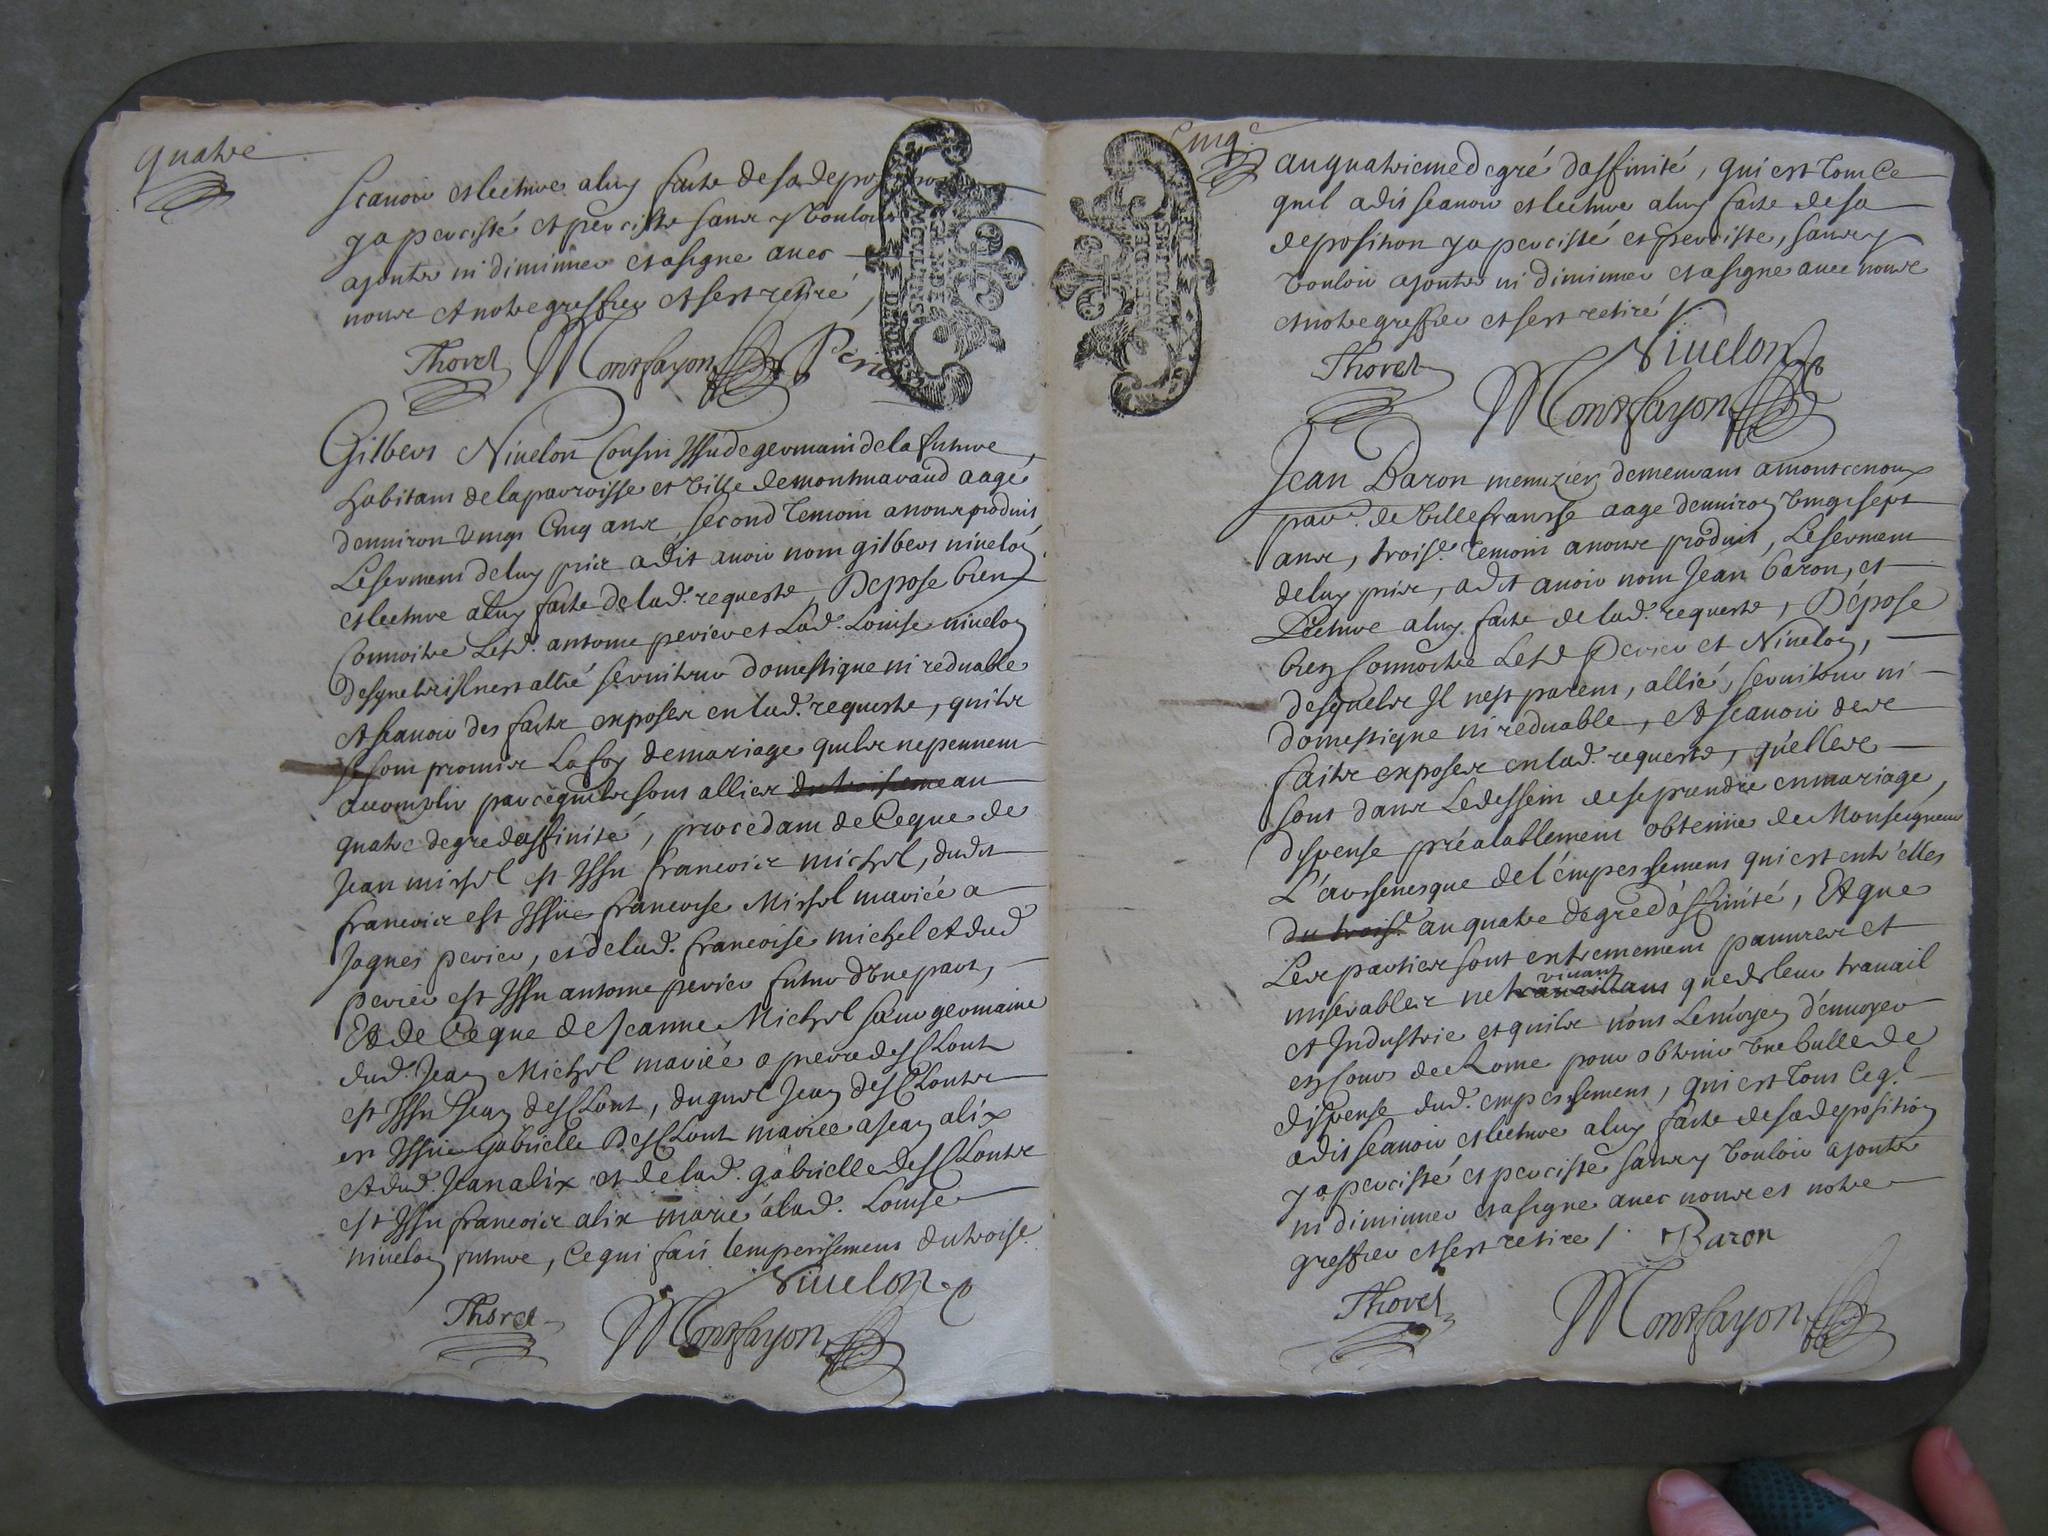 quatre
scauoir et lecture a luy faite de sa deposition
y a percisté et perciste sans y vouloir
ajouter ni diminuer et a signe auec
nous et notre greffier et s'est retiré /
Thorel Montfayon Perier
Gilbert Niuelon Cousin Issu de germain de la future,
habitant de la parroisse et ville de montmaraud aagé
d'enuiron vingt Cinq ans second temoin a nous produit
Le serment de luy pris a dit auoir nom gilbert niuelon
et lecture a luy faite de lad. requeste, Depose bien
Connoitre Lesd. antoine perier et Lad. Louise niuelon
desquels il n'est allié seruiteur domestique ni reduable
et scauoir des faits exposés en lad. requeste, quils
se sont promis La foy de mariage quils ne peuuent
accomplir parcequils sont alliés du troisieme au
quatre degre d'affinité, procedant de Ceque de
Jean michel est Issu francois michel, dudit
francois est Issüe francoise Michel mariée a
Jaques perier, et de lad. francoise michel et dud
perier est Issu antoine perier futur d'une part,
Et de Ceque de Jeanne Michel sœur germaine
dud. Jean Michel mariée a pierre desClout
est Issu Jean desClout, duquel Jean desClouts
est Issüe Gabrielle DesClout mariée a Jean alix
et dud. Jean alix et de lad. gabrielle desClouts
est Issu francois alix marié à lad. Louise
niuelon future, Ce qui fait l'empeschement du troise.
Niuelon
Thorel Montfayon
Cinq.e
au quatrieme degré d'affinité, qui est tout Ce
quil a dit scauoir et lecture a luy faite de sa
deposition y a percisté et perciste, sans y
vouloir ajouter ni diminuer et a signe auec nous
et notre greffier et s'est retiré /.
Niuelon
Thorel Montfayon
Jean Baron menuzier demeurant a montcenoux
par.e de Villefransse aage denuiron vingt sept
ans, trois.e temoin a nous produit, Le serment
de luy pris, a dit auoir nom Jean baron, et
Lecture a luy faite de lad. requeste, Dépose
bien Connoitre Lesd Perier et Niuelon,
desquels Il nest parent, allié, seruiteur ni
domestique ni reduable, et scauoir des
faits exposés en lad. requeste, quelles
sont dans Le dessein de se prendre en mariage,
dispense préalablement obtenüe de Monseigneur
L'archeuesque de l'émpeschement qui est entr'elles
du trois.e au quatre degre d'affinité, Et que
Les parties sont extremement pauures et
miserables ne trauaillant viuant que de leur trauail
et Industrie et quils n'ont Le moyen d'enuoyer
en Cour de Rome pour obtenir Une bulle de
dispense dud. empeschement, qui est tout Ce q.l
a dit scauoir et lecture a luy faite de sa deposition
y a percisté et perciste sans y vouloir ajouter
ni diminuer et a signe auec nous et notre
greffier et s'est retire /. Baron
Thorel Montfayon